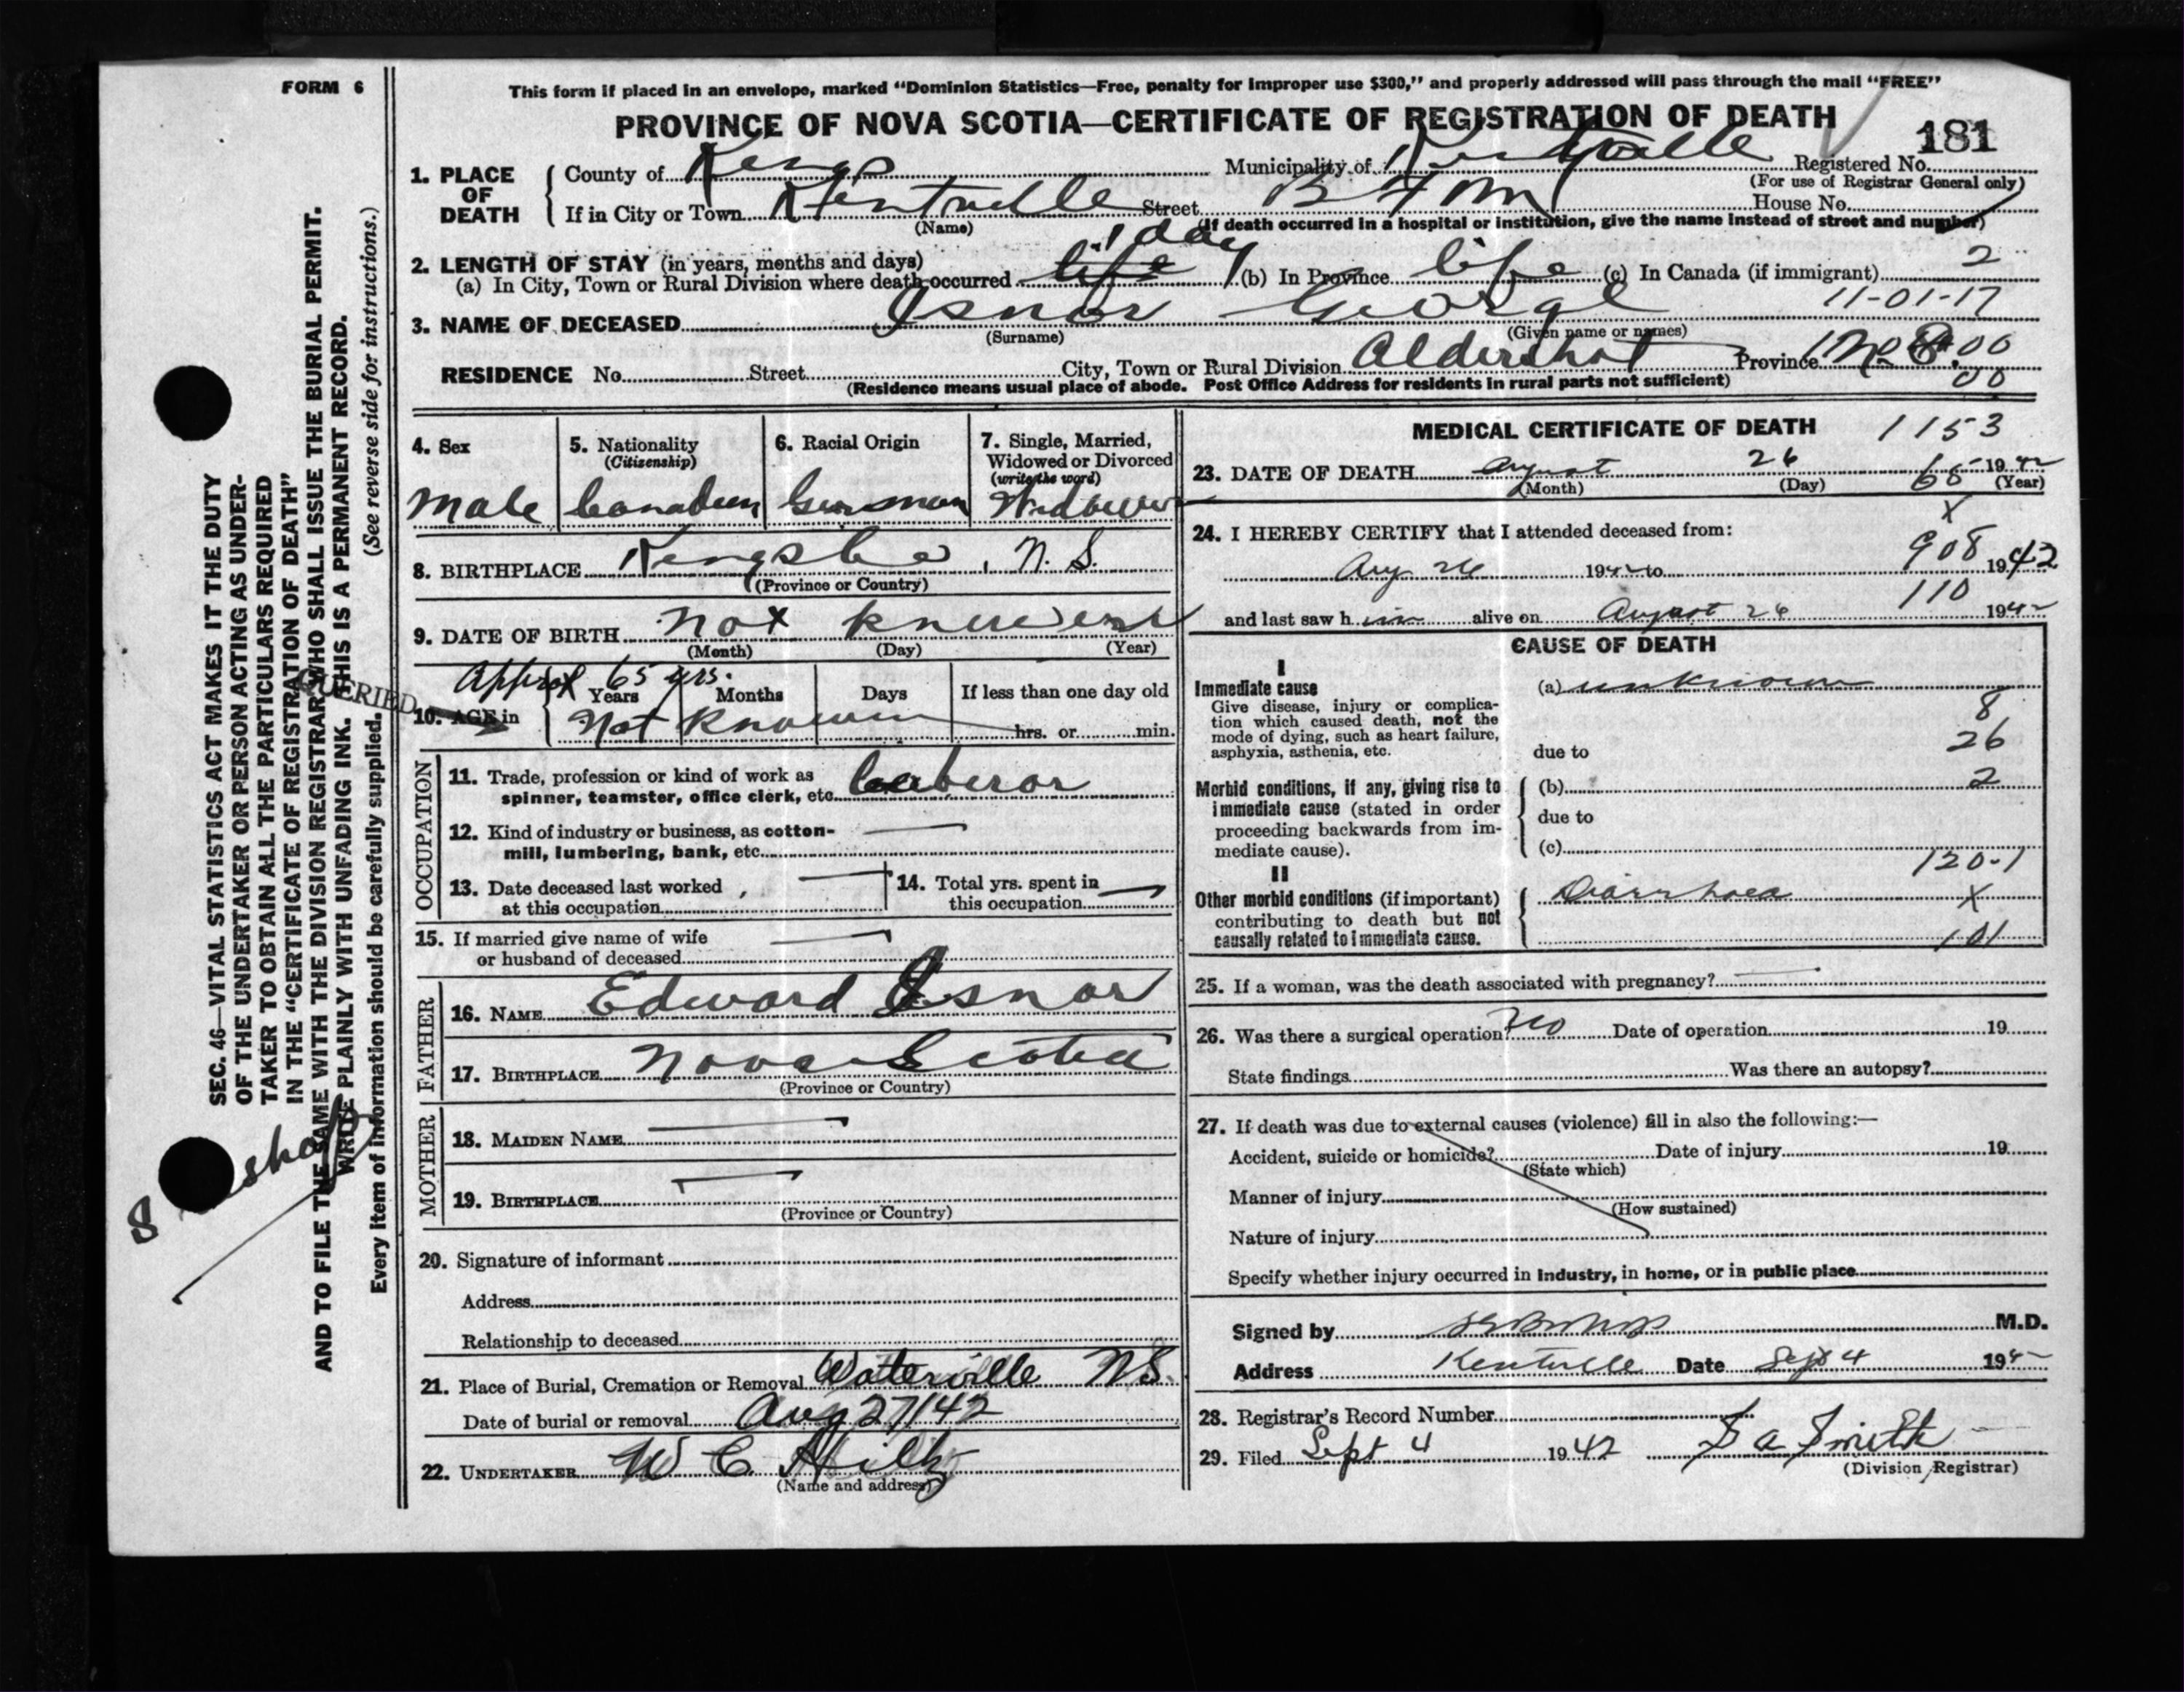 FORM 6
This form if placed in an envelope, marked “Dominion Statistics—Free, penalty for improper use $300,” and properly addressed will pass through the mail “FREE”
PROVINCE OF NOVA SCOTIA—CERTIFICATE OF REGISTRATION OF DEATH
181
1. PLACE OF DEATH
County of Kings Municipality of Kentville Registered No.
(For use of Registrar General only)
If in City or Town Kentville Street B F M House No.
(Name) (If death occurred in a hospital or institution, give the name instead of street and number)
1 day
2. LENGTH OF STAY (in years, months and days) 2
(a) In City, Town or Rural Division where death occurred life (b) In Province life (c) In Canada (if immigrant)
11-01-17
3. NAME OF DECEASED Isnor George
(Surname) (Given name or names)
RESIDENCE No. Street City, Town or Rural Division Aldershot Province N.S. 00
(Residence means usual place of abode. Post Office Address for residents in rural parts not sufficient) 00
4. Sex
Male
5. Nationality
(Citizenship)
Canadian
6. Racial Origin
German
7. Single, Married,
Widowed or Divorced
(write the word)
Widower
8. BIRTHPLACE Kings Co, N.S.
(Province or Country)
9. DATE OF BIRTH Not known
(Month) (Day) (Year)
QUERIED
Approx 65 yrs.
10. AGE in Years Months Days If less than one day old
Not known hrs. or min.
OCCUPATION
11. Trade, profession or kind of work as
spinner, teamster, office clerk, etc. Laberor
12. Kind of industry or business, as cotton-
mill, lumbering, bank, etc. —
13. Date deceased last worked
at this occupation —
14. Total yrs. spent in
this occupation —
15. If married give name of wife
or husband of deceased —
FATHER
16. NAME Edward Isnor
17. BIRTHPLACE Nova Scotia
(Province or Country)
MOTHER
18. MAIDEN NAME —
19. BIRTHPLACE —
(Province or Country)
20. Signature of informant
Address
Relationship to deceased
21. Place of Burial, Cremation or Removal Waterville NS.
Date of burial or removal Aug 27/42
22. UNDERTAKER W C Hiltz
(Name and address)
MEDICAL CERTIFICATE OF DEATH 1153
23. DATE OF DEATH August 26 1942
(Month) (Day) (Year)
65
X
24. I HEREBY CERTIFY that I attended deceased from:
908
Aug 26 1942 to 1942
110
and last saw him alive on August 26 1942
CAUSE OF DEATH
I
Immediate cause
Give disease, injury or complica-
tion which caused death, not the
mode of dying, such as heart failure,
asphyxia, asthenia, etc.
(a) unknown
8
26
due to
Morbid conditions, if any, giving rise to
immediate cause (stated in order
proceeding backwards from im-
mediate cause).
(b) 2
due to
(c)
120-1
II
Other morbid conditions (if important)
contributing to death but not
causally related to immediate cause.
Diarrhoea
X
101
25. If a woman, was the death associated with pregnancy? —
26. Was there a surgical operation? No Date of operation 19
State findings Was there an autopsy?
27. If death was due to external causes (violence) fill in also the following:—
Accident, suicide or homicide? Date of injury 19
(State which)
Manner of injury
(How sustained)
Nature of injury
Specify whether injury occurred in industry, in home, or in public place
Signed by M.D.
Address Kentville Date Sept 4 1942
28. Registrar's Record Number
29. Filed Sept 4 1942 Smith
(Division Registrar)
SEC. 46—VITAL STATISTICS ACT MAKES IT THE DUTY
OF THE UNDERTAKER OR PERSON ACTING AS UNDER-
TAKER TO OBTAIN ALL THE PARTICULARS REQUIRED
IN THE “CERTIFICATE OF REGISTRATION OF DEATH”
AND TO FILE THE SAME WITH THE DIVISION REGISTRAR WHO SHALL ISSUE THE BURIAL PERMIT.
WRITE PLAINLY WITH UNFADING INK. THIS IS A PERMANENT RECORD.
Every item of information should be carefully supplied. (See reverse side for instructions.)
8